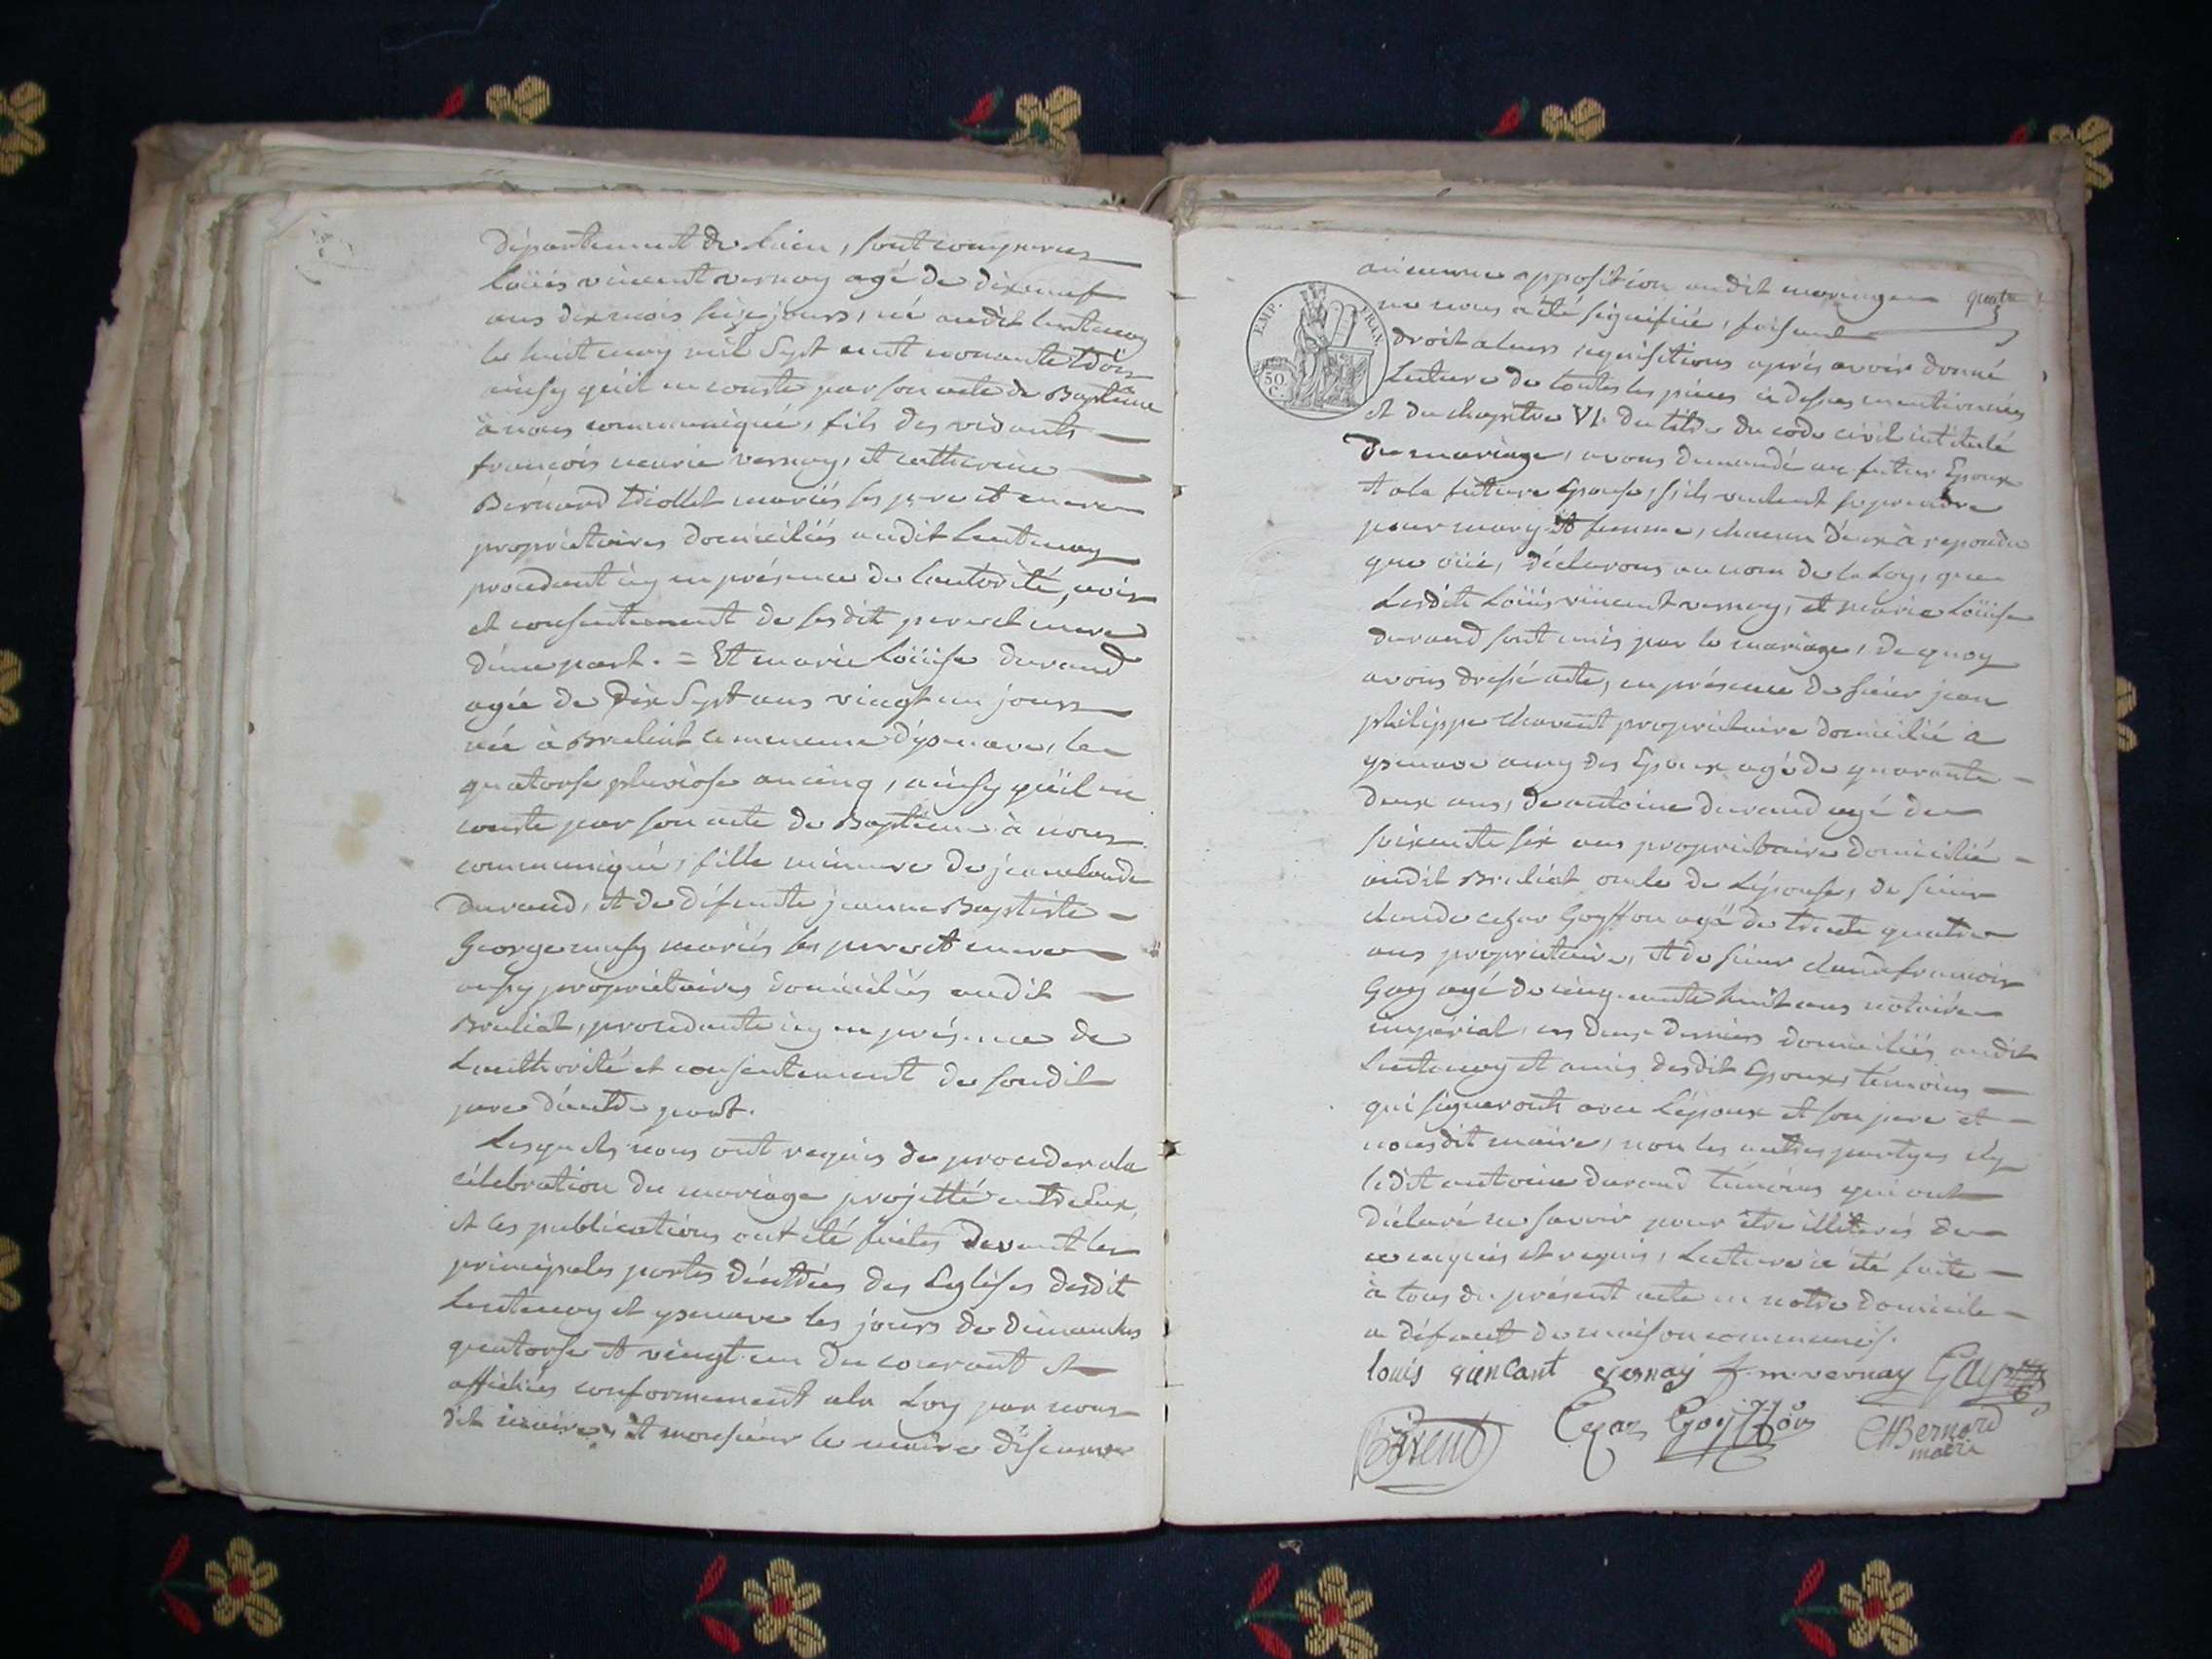 Département de Lain, sont comparus
Loüis vincent vernay agé de dixneuf
ans dix mois seize jours, né audit Lentenay
le huit may mil Sept cent nonante trois
ainsy qu'il en conste par son acte de Baptême
à nous communiqué, fils des vivants
francois marie vernay, et catherine
Bernard mariés ses pere et mere
propriétaires domiciliés audit Lentenay
procedant icy en présence de lautorité, avis
et consentement de sesdit pere et mere
d'une part. = Et marie Loüise durand
agée de Dix Sept ans vingt un jours
née à Breliat commune d'ysenave, le
quatorse pluviose an cinq, ainsy qu'il en
conste par son acte de Baptême à nous
communiqué, fille mineure de jean claude
Durand, et de défunte jeanne Baptiste
George mariés ses pere et mere
aussy propriétaires domiciliés audit
Breliat, procedante icy en présence de
Lauthorité et consentement de sondit
pere d'autre part.
Lesquels nous ont requis de proceder a la
célébration du mariage projetté entre Eux,
et les publications ont été faites devant les
principales portes d'entrées des Eglises desdit
Lentenay et ysenave les jours de dimanches
quatorse et vingt un du courant et
affichés conformement a la Loy par nous
dit maire, et monsieur le maire d'isenave
EMP. FRAN.
50 C.
aucunne opposition audit mariage
ne nous a été signifiée, faisant
droit a leurs réquisitions après avoir donné
Lecture de toutes les pièces ci dessus mentionnées
et du chapitre VI. du titre du code civil intitulé
du mariage, avons demandé au futur Epoux
et a la future Epouse, s'ils veulent se prendre
pour mary et femme, chacun d'eux à repondu
que oüi, déclarons au nom de la Loy, que
Lesdits Loüis vincent vernay, et marie Loüise
durand sont unis par le mariage, de quoy
avons dressé acte, en présence de sieur jean
philippe propriétaire domicilié à
ysenave amy des Epoux agé de quarante
deux ans, de antoine durand agé de
soixante six ans propriétaire domicilié
audit Breliat oncle de L'épouse, de sieur
claude cezar Goyffon agé de trente quatre
ans propriétaire, et de sieur claude francois
Gay agé de cinquante huit ans notaire
imperial, ces deux derniers domiciliés audit
Lentenay et amis desdit Epoux, témoins
qui signeront avec L'époux et son pere et
nousdit maire, non les autres partyes
ledit antoine durand témoins qui ont
déclaré ne savoir pour être illitérés de
ce enquis et requis, Lecture a été faite
à tous du présent acte en notre domicile
a défaut de maison commune.
louis vinCant vernay f. m. vernay Gay
Cezar Goyffon
Bernard
maire